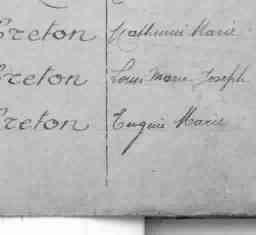 Breton Catherine Marie
Breton Louis Marie Joseph
Breton Eugénie Marie